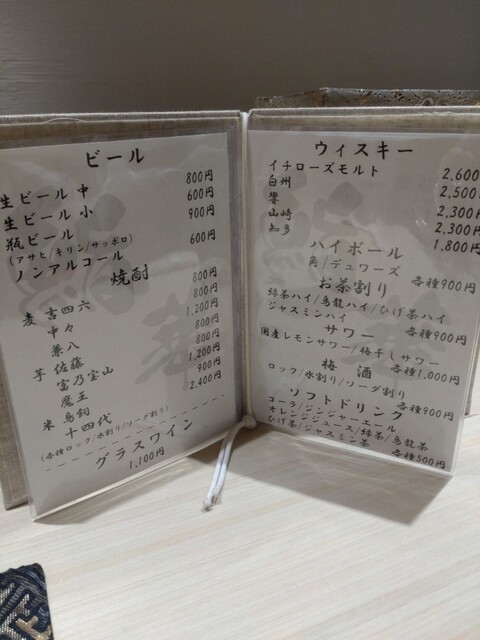 ビール
生ビール 中 800円
生ビール 小 600円
瓶ビール 900円
(アサヒ/キリン/サッポロ)
ノンアルコール 600円
焼酎
麦 吉四六 800円
中々 800円
兼八 1,200円
芋 佐藤 800円
富乃宝山 800円
魔王 1,200円
米 鳥飼 900円
十四代 2,400円
(各種ロック/水割り/ソーダ割り)
グラスワイン
1,100円
ウィスキー
イチローズモルト 2,600
白州 2,500
響 2,300円
山崎 2,300円
知多 1,800円
ハイボール
角/デュワーズ 各種900円
お茶割り
緑茶ハイ/烏龍ハイ/ひげ茶ハイ
ジャスミンハイ 各種900円
サワー
国産レモンサワー/梅干しサワー
各種1,000円
梅酒
ロック/水割り/ソーダ割り
各種900円
ソフトドリンク
コーラ/ジンジャーエール
オレンジジュース/緑茶/烏龍茶
ひげ茶/ジャスミン茶 各種500円